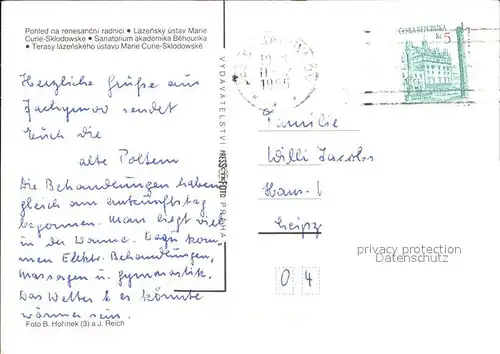 Pohled na renesanční radnici • Lázeňský ústav Marie
Curie-Sklodowské • Sanatorium akademika Běhounka
• Terasy lázeňského ústavu Marie Curie-Sklodowské
Herzliche Grüße aus
Jachymov sendet
Euch die
alte Poltern
Die Behandlungen haben
gleich am Ankunftstag
begonnen. Man liegt viel
in der Wanne. Dazu kom-
men Elektr. Behandlungen,
Massagen u. Gymnastik.
Das Wetter es könnte
wärmer sein.
Foto B. Hořínek (3) a J. Reich
VYDAVATELSTVÍ PRESSFOTO PRAHA
ČESKÁ REPUBLIKA
Kč 5
1995
Familie
Willi Jacobs
Hans-
Leipz
04
privacy protection
Datenschutz